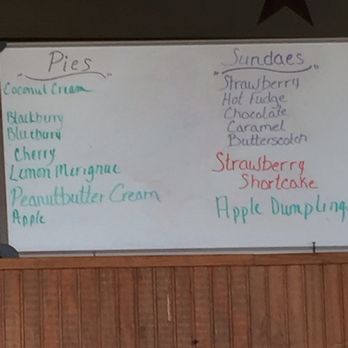 Pies
Coconut Cream
Blackburry
Blueburry
Cherry
Lemon Merignue
Peanutbutter Cream
Apple
Sundaes
Strawberry
Hot Fudge
Chocolate
Caramel
Butterscotch
Strawberry
Shortcake
Apple Dumpling